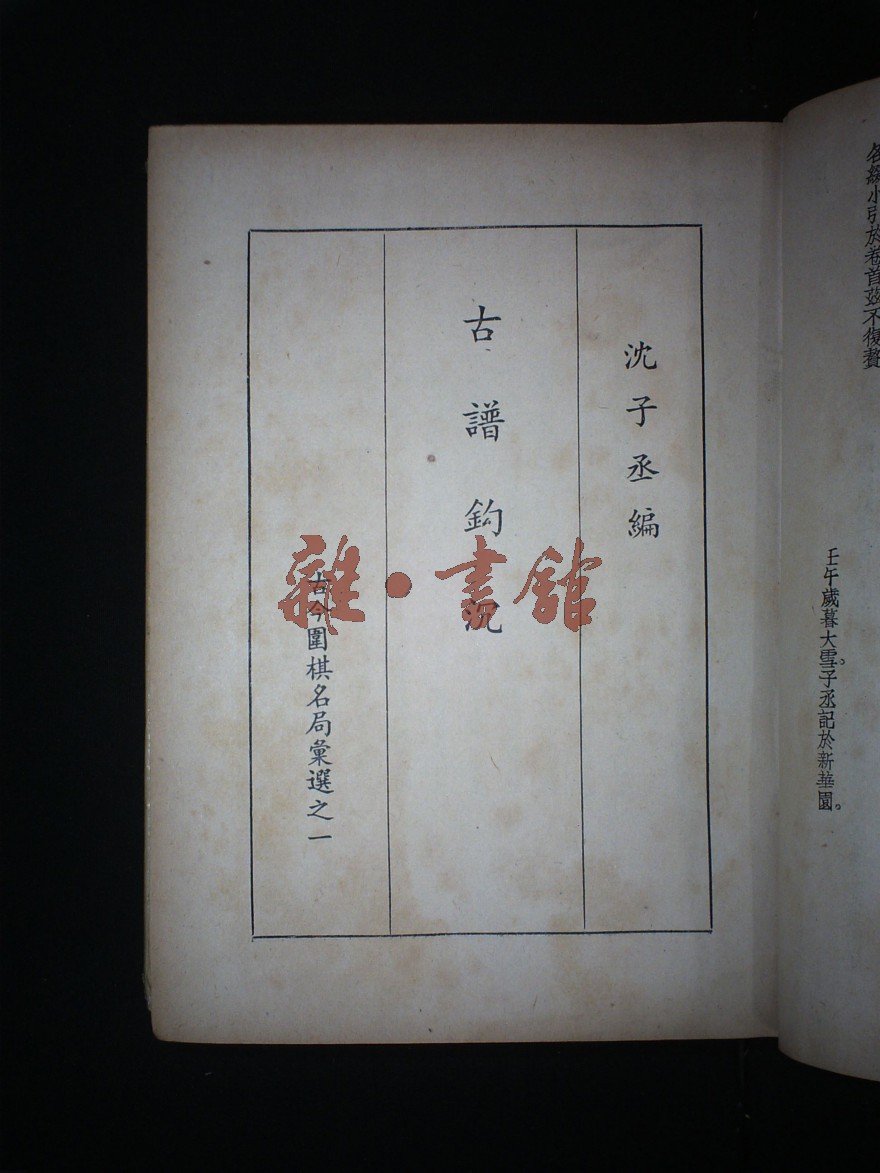 各綴小引於卷首茲不復贅
壬午歲暮大雪。子丞記於新華園。
沈子丞編
古譜鈎沉
古今圍棋名局彙選之一
雜·書館